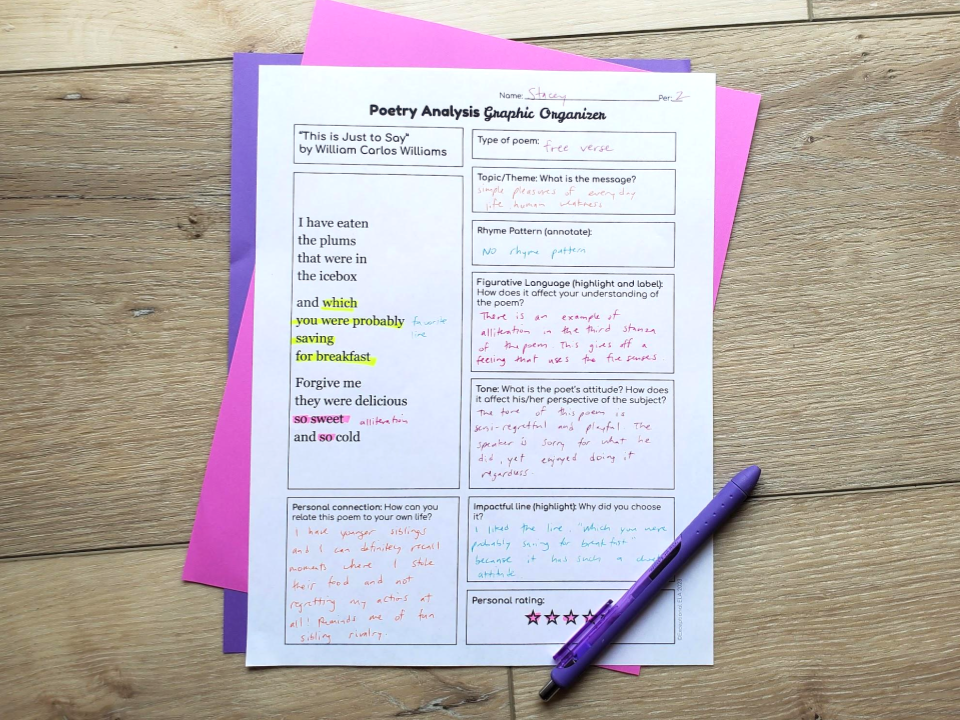 Name: Stacey Per: 2
Poetry Analysis Graphic Organizer
"This is Just to Say"
by William Carlos Williams
I have eaten
the plums
that were in
the icebox
and which
you were probably
saving
for breakfast
favorite
line
Forgive me
they were delicious
so sweet
alliteration
and so cold
Type of poem: free verse
Topic/Theme: What is the message?
simple pleasures of everyday
life human weakness
Rhyme Pattern (annotate):
NO rhyme pattern
Figurative Language (highlight and label):
How does it affect your understanding of
the poem?
There is an example of
alliteration in the third stanza
of the poem. This gives off a
feeling that uses the five senses.
Tone: What is the poet's attitude? How does
it affect his/her perspective of the subject?
The tone of this poem is
semi-regretful and playful. The
speaker is sorry for what he
did, yet enjoyed doing it
regardless.
Personal connection: How can you
relate this poem to your own life?
I have younger siblings
and I can definitely recall
moments where I stole
their food and not
regretting my actions at
all! Reminds me of fun
sibling rivalry.
Impactful line (highlight): Why did you choose
it?
I liked the line, "which you were
probably saving for breakfast"
because it has such a
attitude
Personal rating: